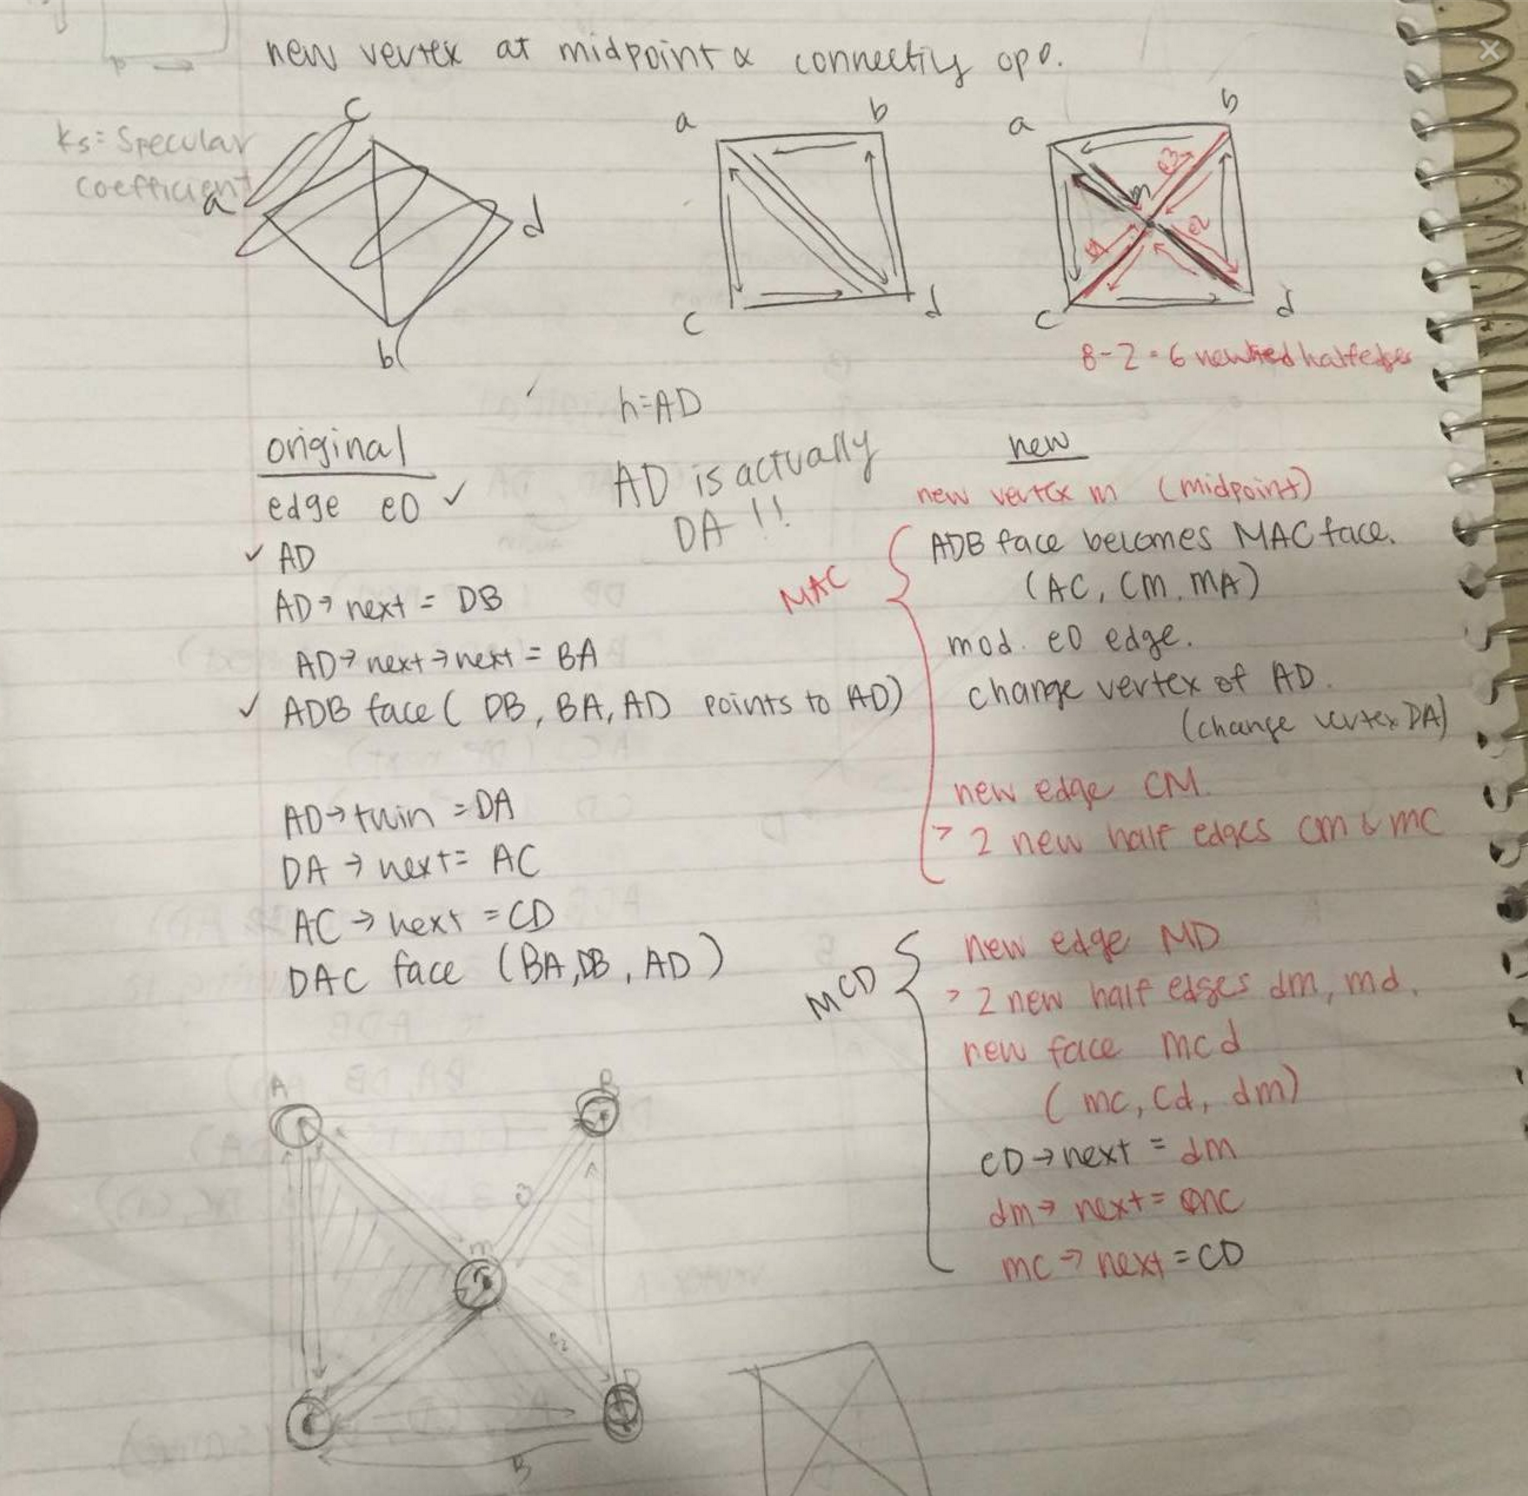 new vertex at midpoint & connectiy opp.
ks = Specular
coefficient
c
a
d
b
a
b
c
d
a
b
m
e3
e1
e2
c
d
8-2=6 new red halfedges
h=AD
AD is actually
DA !!
original
edge e0 ✓
✓ AD
AD→ next = DB
AD→next→next = BA
✓ ADB face ( DB, BA, AD points to AD)
AD→ twin = DA
DA → next= AC
AC → next = CD
DAC face (BA, DB, AD)
new
new vertex m (midpoint)
MAC
ADB face becomes MAC face.
(AC, CM, MA)
mod. e0 edge.
change vertex of AD.
(change vertex DA)
new edge CM.
> 2 new half edges cm & mc
MCD
new edge MD
> 2 new half edges dm, md.
new face mcd
( mc, cd, dm)
CD→next = dm
dm→ next= mc
mc→ next = CD
A
B
m
e2
D